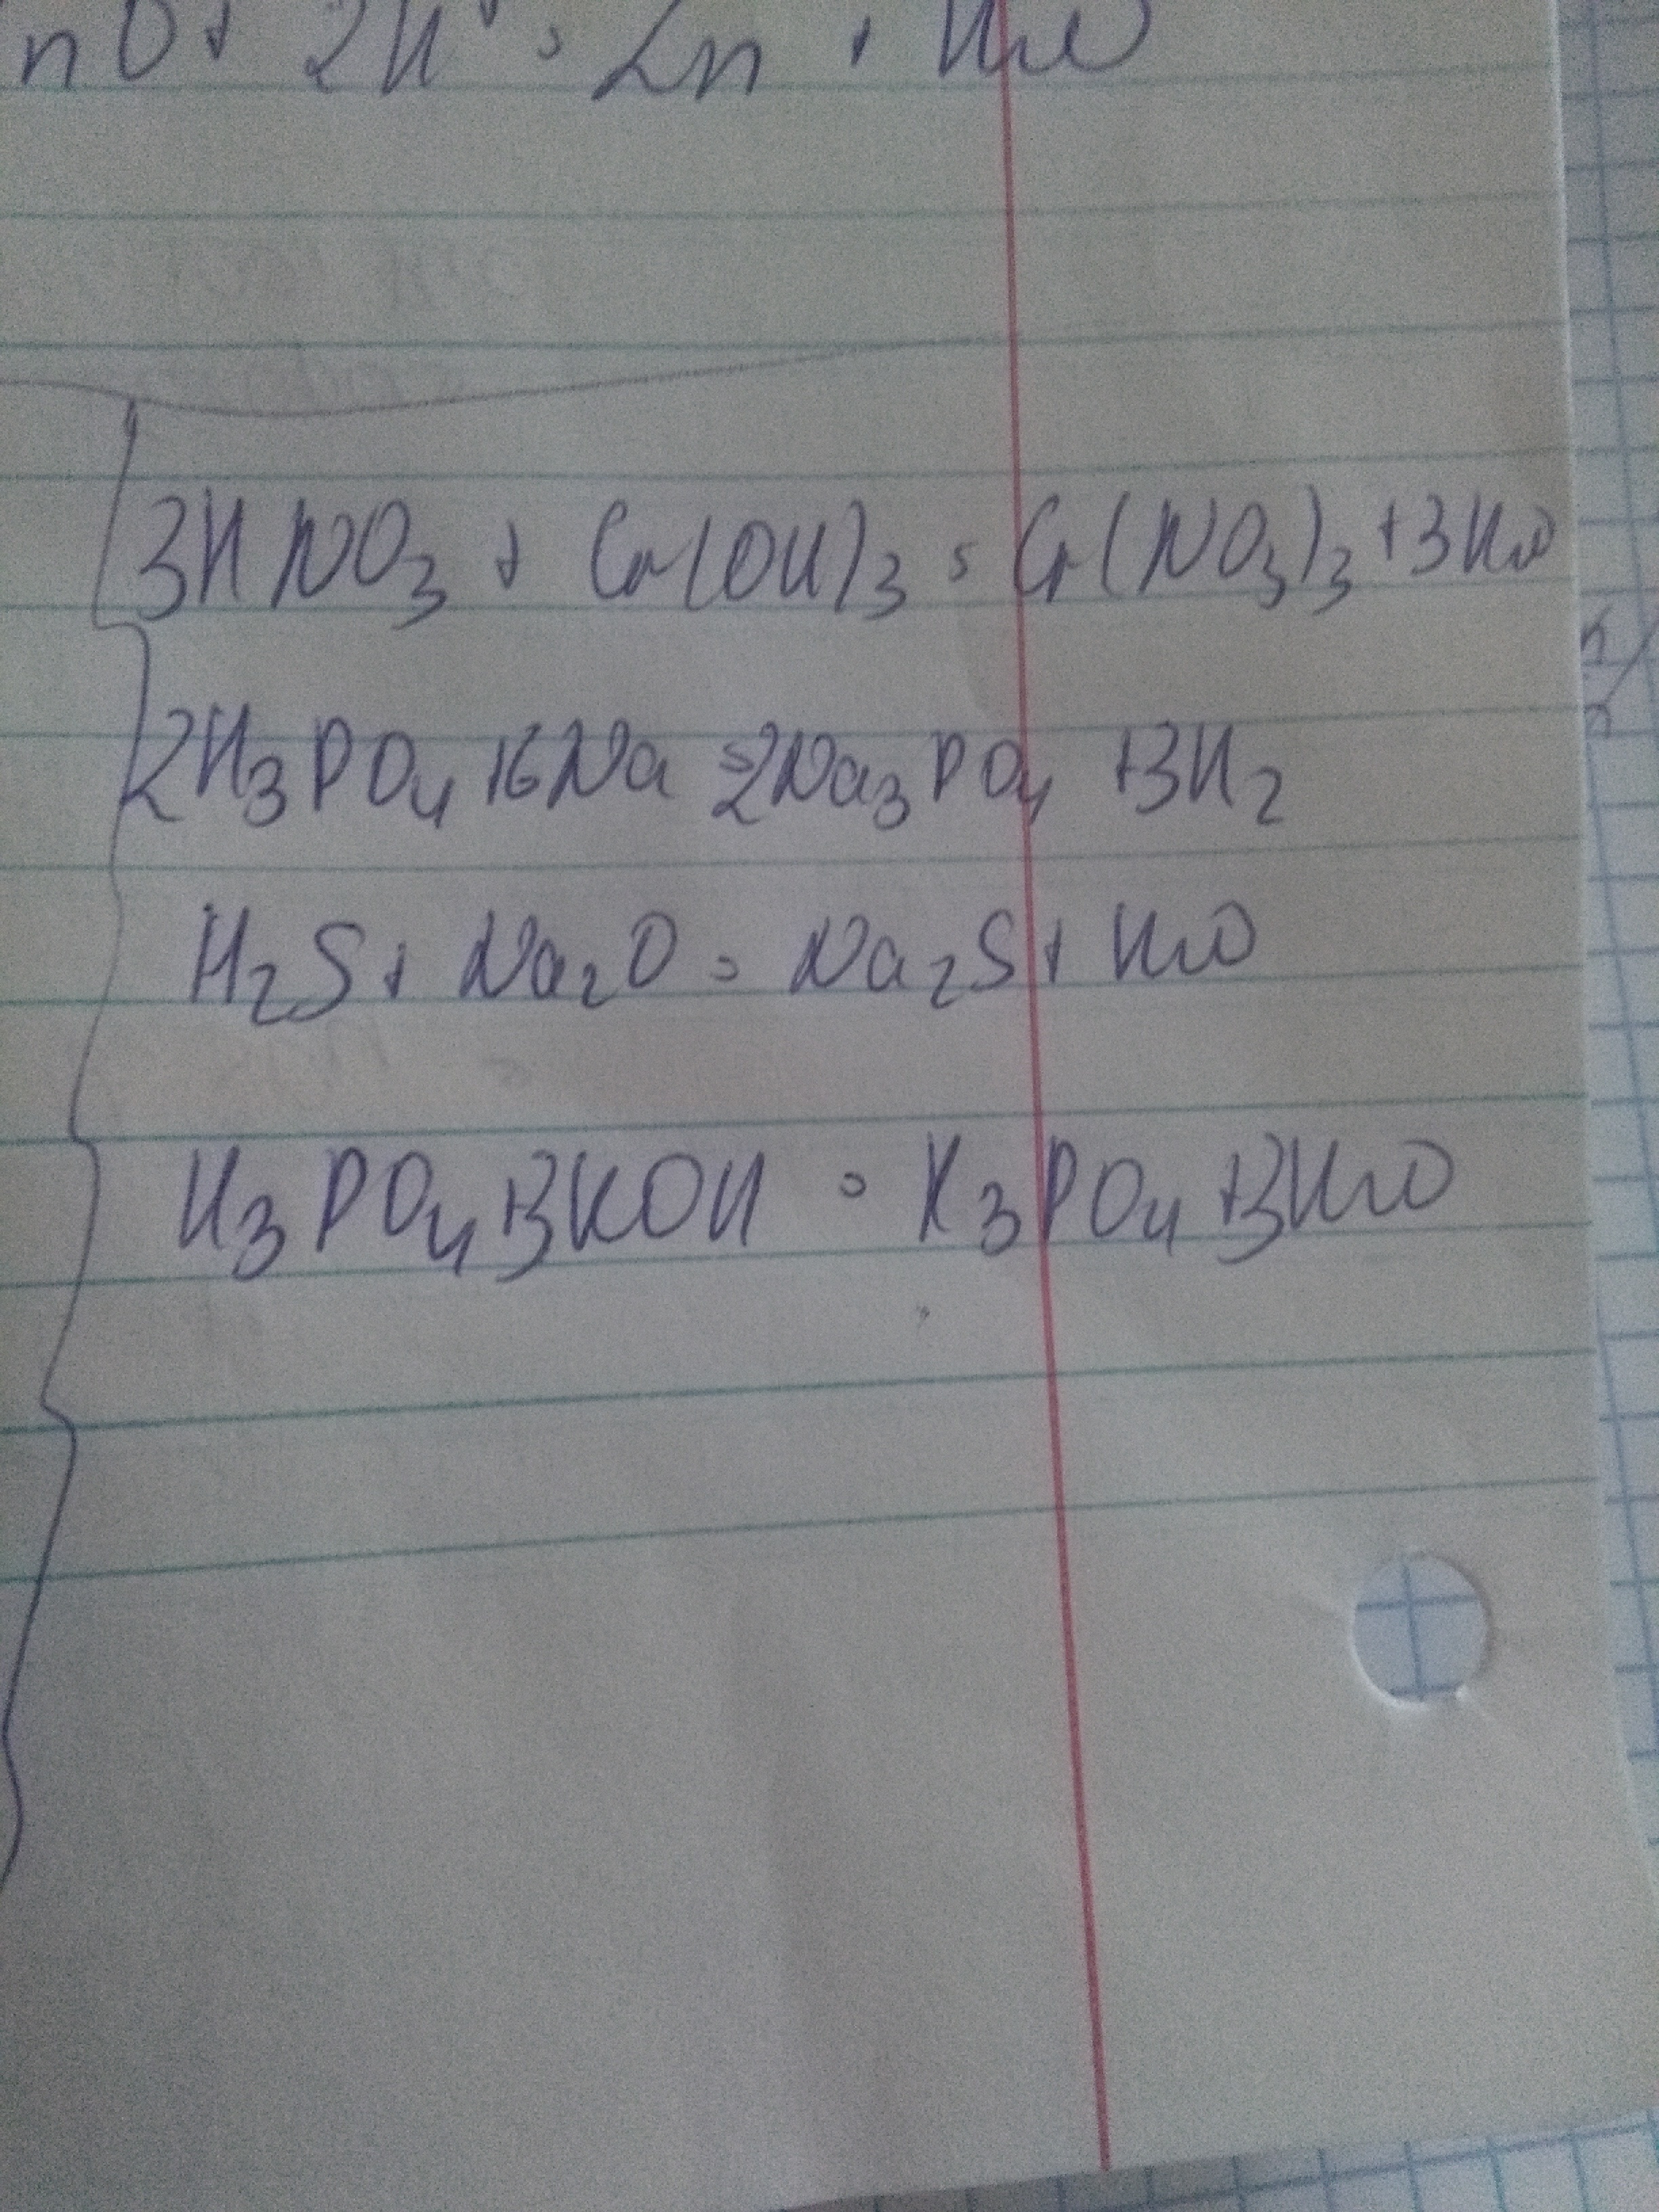 nO + 2H = Zn + H₂O
3HNO₃ + Cr(OH)₃ = Cr(NO₃)₃ + 3H₂O
2H₃PO₄ + 6Na = 2Na₃PO₄ + 3H₂
H₂S + Na₂O = Na₂S + H₂O
H₃PO₄ + 3KOH = K₃PO₄ + 3H₂O